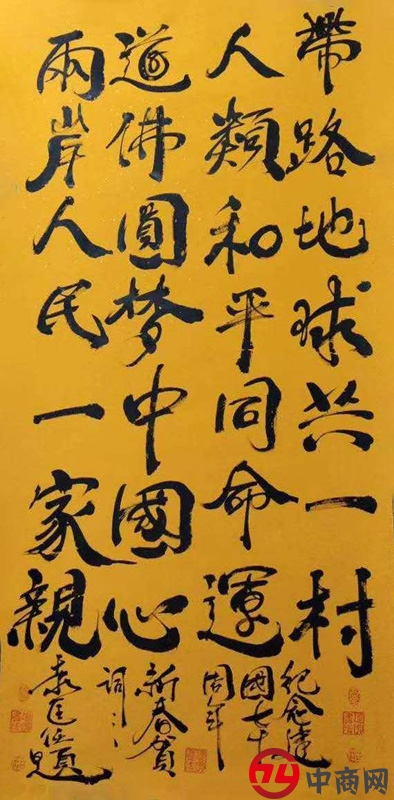 帶路地球共一村
人類和平同命運
道佛圓梦中國心
兩岸人民一家親
紀念建
國七十
周年
新春賀
詞
中商网